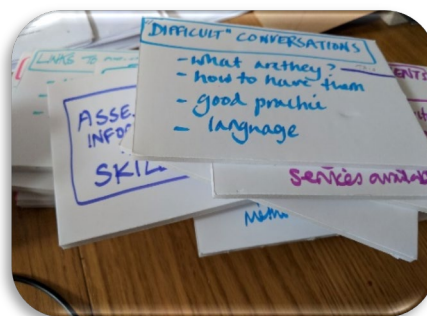 DIFFICULT" CONVERSATIONS
- what are they?
- how to have them
- good practice
- language
LINKS TO
ASSE
INFO
SKIL
ENTS
services availab